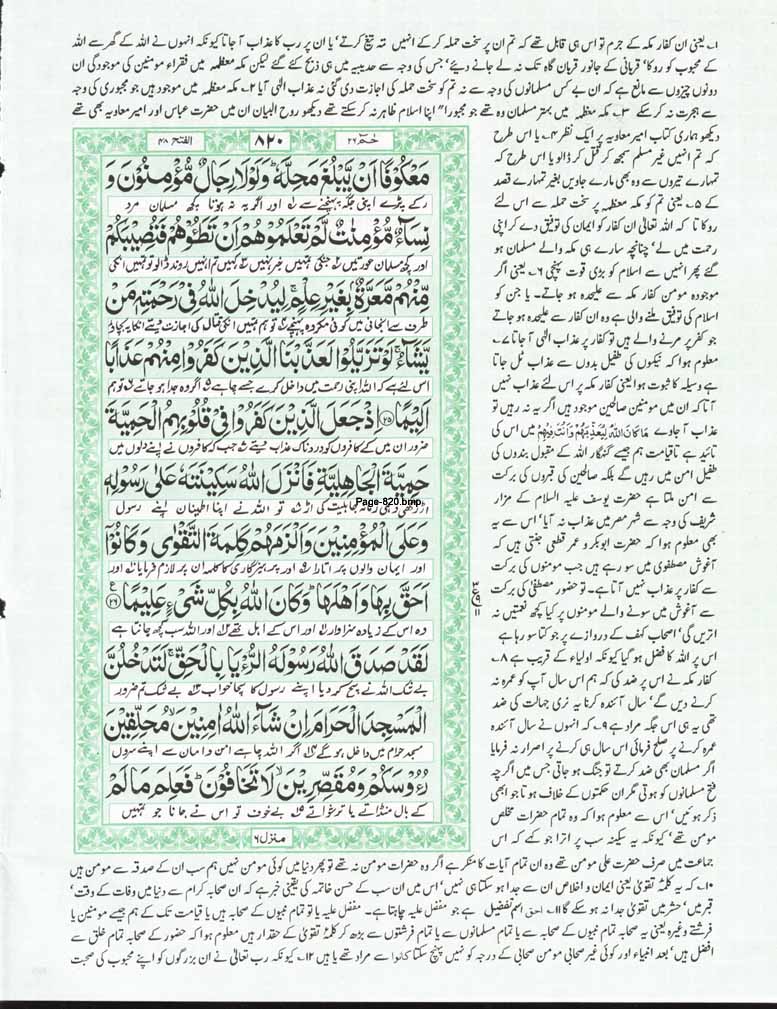 ۱۔ یعنی ان کفار مکہ کے جرم تو اس ہی قابل تھے کہ تم ان پر سخت حملہ کر کے انہیں تہ تیغ کرتے' یا ان پر رب کا عذاب آ جاتا کیونکہ انہوں نے اللہ کے گھر سے اللہ
کے محبوب کو روکا' قربانی کے جانور قربان گاہ تک نہ لے جانے دیئے' جس کی وجہ سے حدیبیہ میں ہی ذبح کئے گئے لیکن مکہ معظمہ میں فقراء مومنین کی موجودگی ان
دونوں چیزوں سے مانع ہے کہ ان بے کس مسلمانوں کی وجہ سے نہ تم کو سخت حملہ کی اجازت دی گئی نہ عذاب الٰہی آیا ۲۔ مکہ معظمہ میں موجود ہیں جو مجبوری کی وجہ
سے ہجرت نہ کر سکے ۳۔ مکہ معظمہ میں بہتر مسلمان وہ تھے جو مجبورا" اپنا اسلام ظاہر نہ کر سکتے تھے دیکھو روح البیان ان میں حضرت عباس اور امیر معاویہ بھی تھے
دیکھو ہماری کتاب امیر معاویہ پر ایک نظر ۴۔ یا اس طرح
کہ تم انہیں غیر مسلم سمجھ کر قتل کر ڈالو یا اس طرح کہ
تمہارے تیروں سے وہ بھی مارے جاویں بغیر تمہارے قصد
کے ۵۔ یعنی تم کو مکہ معظمہ پر سخت حملہ سے اس لئے
روکا تا کہ اللہ تعالیٰ ان کفار کو ایمان کی توفیق دے کر اپنی
رحمت میں لے' چنانچہ سارے ہی مکہ والے مسلمان ہو
گئے پھر انہیں سے اسلام کو بڑی قوت پہنچی ۶۔ یعنی اگر
موجودہ مومن کفار مکہ سے علیحدہ ہو جاتے۔ یا جن کو
اسلام کی توفیق ملنے والی ہے وہ ان کفار سے علیحدہ ہو جاتے
جو کفر پر مرنے والے ہیں تو کفار پر عذاب الٰہی آ جاتا ۷۔
معلوم ہوا کہ نیکوں کی طفیل بدوں سے عذاب ٹل جاتا
ہے وسیلہ کا ثبوت ہوا یعنی کفار مکہ پر اس لئے عذاب نہیں
آتا کہ ان میں مومنین صالحین موجود ہیں اگر یہ نہ رہیں تو
عذاب آ جاوے مَا كَانَ اللهُ لِيُعَذِّبَهُمْ وَأَنْتَ فِيْهِمْ میں اس کی
تائید ہے تاقیامت ہم جیسے گنہگار اللہ کے مقبول بندوں کی
طفیل امن میں رہیں گے بلکہ صالحین کی قبروں کی برکت
سے امن ملتا ہے حضرت یوسف علیہ السلام کے مزار
شریف کی وجہ سے شہر مصر میں عذاب نہ آیا' اس سے یہ
بھی معلوم ہوا کہ حضرت ابوبکر و عمر قطعی جنتی ہیں کہ
آغوش مصطفوی میں سو رہے ہیں جب مومنوں کی برکت
سے کفار پر عذاب نہیں آتا ہے۔ تو حضور مصطفیٰ کی برکت
سے آغوش میں سونے والے مومنوں پر کیا کچھ نعمتیں نہ
اتریں گی' اصحاب کہف کے دروازے پر جو کتا سو رہا ہے
اس پر اللہ کا فضل ہو گیا کیونکہ اولیاء کے قریب ہے ۸۔
کفار مکہ نے اس پر ضد کی کہ ہم اس سال آپ کو عمرہ نہ
کرنے دیں گے' سال آئندہ کرنا یہ نری جہالت کی ضد
تھی یہ ہی اس جگہ مراد ہے ۹۔ کہ انہوں نے سال آئندہ
عمرہ کرنے پر صلح فرمائی اس سال ہی کرنے پر اصرار نہ فرمایا
اگر مسلمان بھی ضد کرتے تو جنگ ہو جاتی جس میں اگرچہ
فتح مسلمانوں کو ہوتی مگر ان حکمتوں کے خلاف ہوتا جو ابھی
ذکر ہوئیں' اس سے معلوم ہوا کہ وہ تمام حضرات مخلص
مومن تھے' کیونکہ یہ سکینہ سب پر اترا جو کہے کہ اس
الفتح ۴۸
۸۲۰
حٰمٓ ۲۶
مَعْكُوْفًا اَنْ يَّبْلُغَ مَحِلَّهٗ ؕ وَلَوْلَا رِجَالٌ مُّؤْمِنُوْنَ وَ
رکے پڑے اپنی جگہ پہنچنے سے اور اگر یہ نہ ہوتا کچھ مسلمان مرد
نِسَآءٌ مُّؤْمِنٰتٌ لَّمْ تَعْلَمُوْهُمْ اَنْ تَطَـُٔوْهُمْ فَتُصِيْبَكُمْ
اور کچھ مسلمان عورتیں جنکی تمہیں خبر نہیں کہیں تم انہیں روند ڈالو تو تمہیں انکی
مِّنْهُمْ مَّعَرَّةٌۢ بِغَيْرِ عِلْمٍ ۚ لِيُدْخِلَ اللّٰهُ فِيْ رَحْمَتِهٖ مَنْ
طرف سے انجانی میں کوئی مکروہ پہنچے تو ہم تمہیں انکی قتال کی اجازت دیتے انکا یہ بچاؤ
يَّشَآءُ ۚ لَوْ تَزَيَّلُوْا لَعَذَّبْنَا الَّذِيْنَ كَفَرُوْا مِنْهُمْ عَذَابًا
اس لئے ہے کہ اللہ اپنی رحمت میں داخل کرے جسے چاہے اگر وہ جدا ہو جاتے تو ہم
اَلِيْمًا ۲۵ اِذْ جَعَلَ الَّذِيْنَ كَفَرُوْا فِيْ قُلُوْبِهِمُ الْحَمِيَّةَ
ضرور ان میں کے کافروں کو دردناک عذاب دیتے جب کہ کافروں نے اپنے دلوں میں
حَمِيَّةَ الْجَاهِلِيَّةِ فَاَنْزَلَ اللّٰهُ سَكِيْنَتَهٗ عَلٰى رَسُوْلِهٖ
اڑ رکھی وہی زمانہ جاہلیت کی اڑ تو اللہ نے اپنا اطمینان اپنے رسول
Page-820.bmp
وَعَلَى الْمُؤْمِنِيْنَ وَاَلْزَمَهُمْ كَلِمَةَ التَّقْوٰى وَكَانُوْۤا
اور ایمان والوں پر اتارا اور پرہیزگاری کا کلمہ ان پر لازم فرمایا اور
اَحَقَّ بِهَا وَاَهْلَهَا ؕ وَكَانَ اللّٰهُ بِكُلِّ شَيْءٍ عَلِيْمًا ۲۶
وہ اس کے زیادہ سزاوار اور اس کے اہل تھے اور اللہ سب کچھ جانتا ہے
لَقَدْ صَدَقَ اللّٰهُ رَسُوْلَهُ الرُّءْيَا بِالْحَقِّ ۚ لَتَدْخُلُنَّ
بے شک اللہ نے سچ کر دیا اپنے رسول کا سچا خواب بے شک تم ضرور
الْمَسْجِدَ الْحَرَامَ اِنْ شَآءَ اللّٰهُ اٰمِنِيْنَ ۙ مُحَلِّقِيْنَ
مسجد حرام میں داخل ہو گے اگر اللہ چاہے امن و امان سے اپنے سروں
رُءُوْسَكُمْ وَمُقَصِّرِيْنَ ۙ لَا تَخَافُوْنَ ؕ فَعَلِمَ مَا لَمْ
کے بال منڈاتے یا ترشواتے بے خوف تو اس نے جانا جو تمہیں
منزل ۶
جماعت میں صرف حضرت علی مومن تھے وہ ان تمام آیات کا منکر ہے اگر وہ حضرات مومن نہ تھے تو پھر دنیا میں کوئی مومن نہیں ہم سب ان کے صدقہ سے مومن ہیں
۱۰۔ کہ یہ کلمہ تقویٰ یعنی ایمان و اخلاص ان سے جدا ہو سکتا ہی نہیں' اس میں ان سب کے حسن خاتمہ کی یقینی خبر ہے کہ ان صحابہ کرام سے دنیا میں وفات کے وقت'
قبر میں' حشر میں تقویٰ جدا نہ ہو سکے گا ۱۱۔ احق اسم تفضیل ہے جو مفضل علیہ چاہتا ہے۔ مفضل علیہ یا تو تمام نبیوں کے صحابہ ہیں یا قیامت تک کے ہم جیسے مومنین یا
فرشتے وغیرہ یعنی یہ صحابہ تمام نبیوں کے صحابہ سے یا تمام مسلمانوں سے یا تمام فرشتوں سے بڑھ کر کلمہ تقویٰ کے حقدار ہیں معلوم ہوا کہ حضور کے صحابہ تمام خلق سے
افضل ہیں' بعد انبیاء اور کوئی غیر صحابی مومن صحابی کے درجہ کو نہیں پہنچ سکتا کانوا سے مراد تھے یا ہیں ۱۲۔ کیونکہ رب تعالیٰ نے ان بزرگوں کو اپنے محبوب کی صحبت